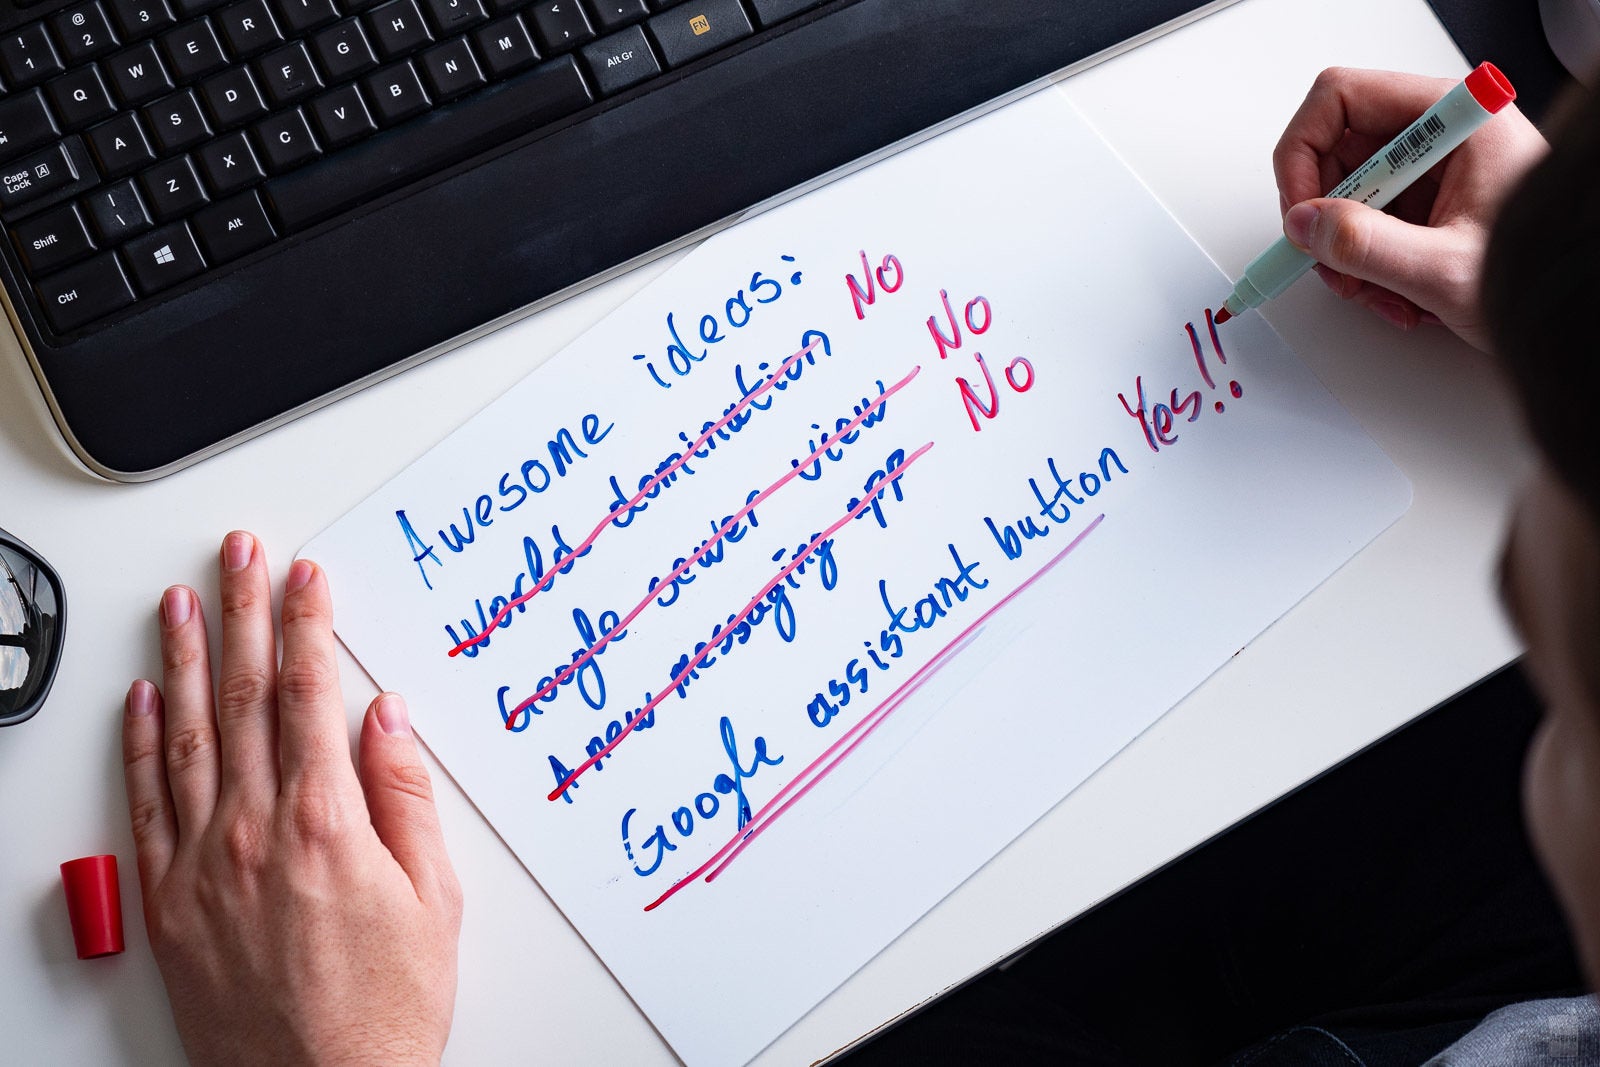 Awesome ideas:
World domination No
Google sewer view No
A new messaging app No
Google assistant button Yes!!
! 1
@ 2
3
Q W E R
A S D F G H J
Z X C V B N M
Caps Lock A
Shift
Ctrl
Alt
Alt Gr
FN
when not in use